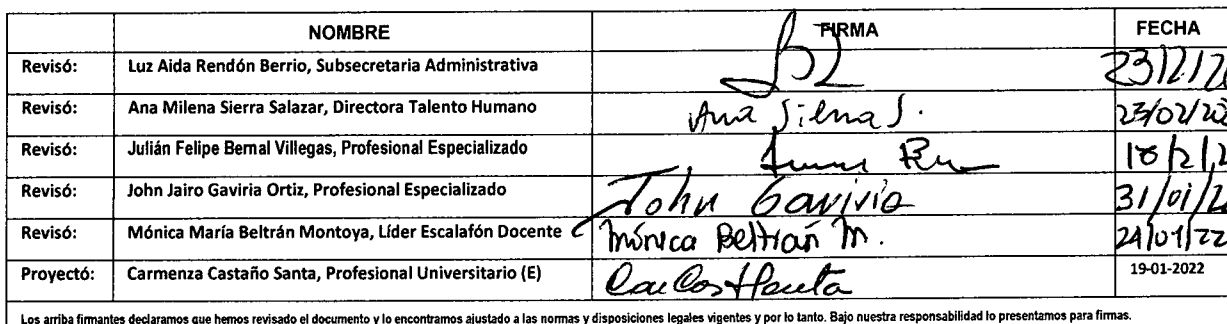 NOMBRE FIRMA FECHA
Revisó: Luz Aida Rendón Berrio, Subsecretaria Administrativa
Revisó: Ana Milena Sierra Salazar, Directora Talento Humano Ana 23/02/22
Revisó: Julián Felipe Bernal Villegas, Profesional Especializado
Revisó: John Jairo Gaviria Ortiz, Profesional Especializado John Gaviria 31/01/2
Revisó: Mónica María Beltrán Montoya, Líder Escalafón Docente Mónica Beltrán M. 24/01/22
Proyectó: Carmenza Castaño Santa, Profesional Universitario (E) 19-01-2022
Los arriba firmantes declaramos que hemos revisado el documento y lo encontramos ajustado a las normas y disposiciones legales vigentes y por lo tanto. Bajo nuestra responsabilidad lo presentamos para firmas.